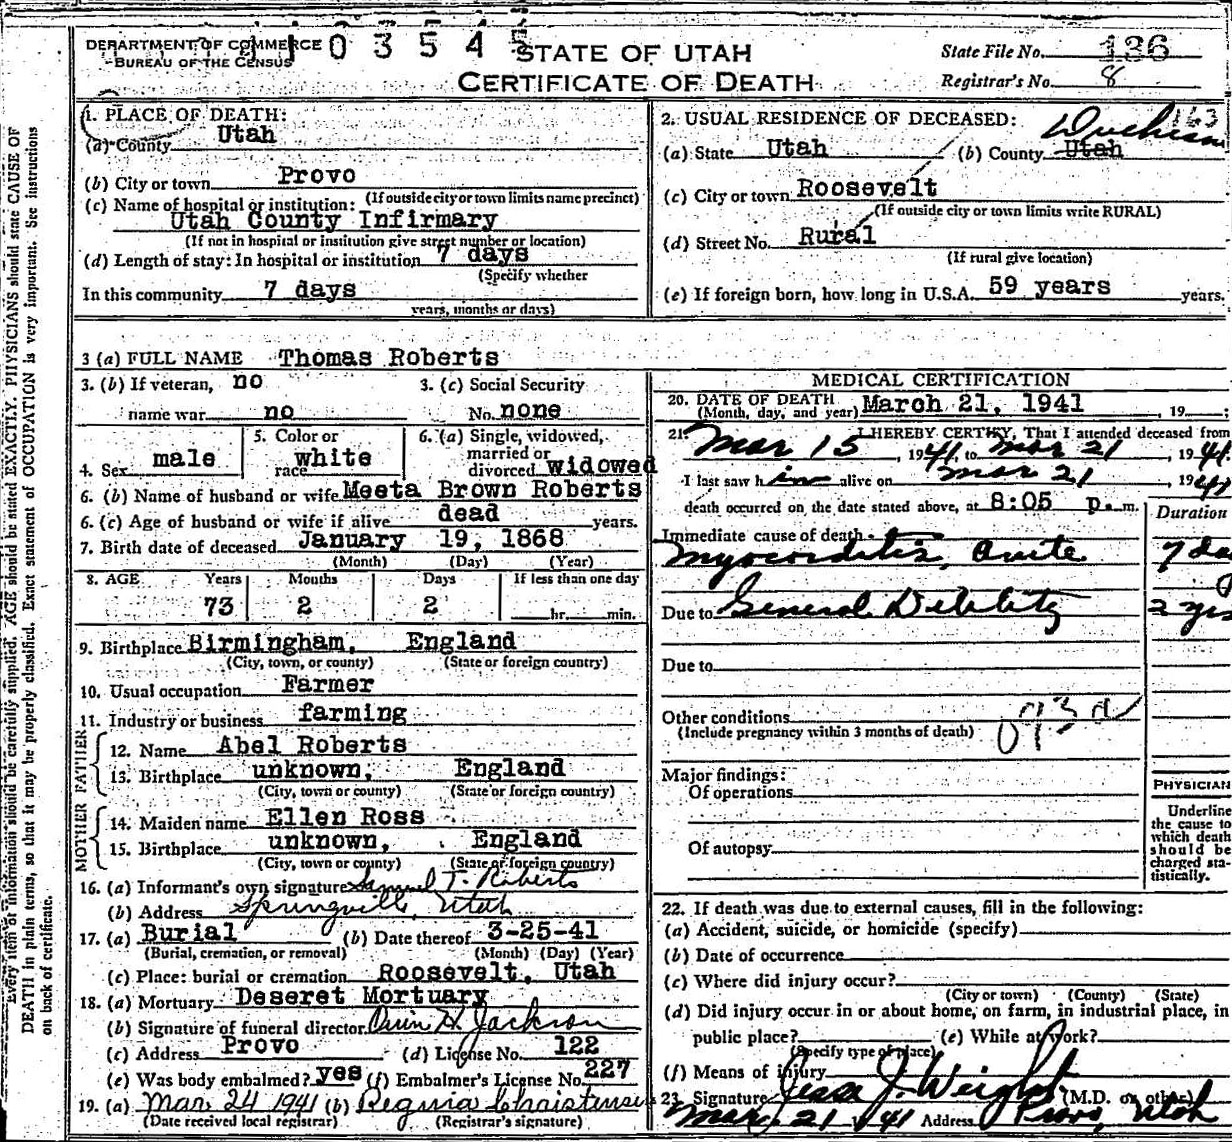 DEPARTMENT OF COMMERCE
BUREAU OF THE CENSUS
103545
STATE OF UTAH
CERTIFICATE OF DEATH
State File No. 136
Registrar's No. 8
Every item of information should be carefully supplied. AGE should be stated EXACTLY. PHYSICIANS should state CAUSE OF
DEATH in plain terms, so that it may be properly classified. Exact statement of OCCUPATION is very important. See instructions
on back of certificate.
1. PLACE OF DEATH:
(a) County Utah
(b) City or town Provo
(If outside city or town limits name precinct)
(c) Name of hospital or institution:
Utah County Infirmary
(If not in hospital or institution give street number or location)
(d) Length of stay: In hospital or institution 7 days
(Specify whether
In this community 7 days
years, months or days)
2. USUAL RESIDENCE OF DECEASED: 163
Duchesne
(a) State Utah (b) County Utah
(c) City or town Roosevelt
(If outside city or town limits write RURAL)
(d) Street No. Rural
(If rural give location)
(e) If foreign born, how long in U.S.A. 59 years years.
3 (a) FULL NAME Thomas Roberts
3. (b) If veteran, no
name war no
3. (c) Social Security
No. none
4. Sex male
5. Color or
race white
6. (a) Single, widowed,
married or
divorced widowed
6. (b) Name of husband or wife Meeta Brown Roberts
6. (c) Age of husband or wife if alive dead years.
7. Birth date of deceased January 19, 1868
(Month) (Day) (Year)
8. AGE Years Months Days If less than one day
73 2 2 hr. min.
9. Birthplace Birmingham, England
(City, town, or county) (State or foreign country)
10. Usual occupation Farmer
11. Industry or business farming
FATHER
12. Name Abel Roberts
13. Birthplace unknown, England
(City, town or county) (State or foreign country)
MOTHER
14. Maiden name Ellen Ross
15. Birthplace unknown, England
(City, town or county) (State or foreign country)
16. (a) Informant's own signature Samuel T. Roberts
(b) Address Springville, Utah
17. (a) Burial (b) Date thereof 3-25-41
(Burial, cremation, or removal) (Month) (Day) (Year)
(c) Place: burial or cremation Roosevelt, Utah
18. (a) Mortuary Deseret Mortuary
(b) Signature of funeral director H. Jackson
(c) Address Provo (d) License No. 122
(e) Was body embalmed? yes (f) Embalmer's License No. 227
19. (a) Mar 24 1941 (b)
(Date received local registrar) (Registrar's signature)
MEDICAL CERTIFICATION
20. DATE OF DEATH
(Month, day, and year) March 21, 1941, 19
21. I HEREBY CERTIFY, That I attended deceased from
Mar 15, 1941, to Mar 21, 1941.
I last saw him alive on Mar 21, 1941
death occurred on the date stated above, at 8:05 p. m.
Duration
Immediate cause of death
Myocarditis, Acute 7 da
Due to General Debility 2 yrs
Due to
Other conditions
(Include pregnancy within 3 months of death)
93d
Major findings:
Of operations
Of autopsy
PHYSICIAN
Underline
the cause to
which death
should be
charged sta-
tistically.
22. If death was due to external causes, fill in the following:
(a) Accident, suicide, or homicide (specify)
(b) Date of occurrence
(c) Where did injury occur?
(City or town) (County) (State)
(d) Did injury occur in or about home, on farm, in industrial place, in
public place? (e) While at work?
(Specify type of place)
(f) Means of injury
23. Signature J. Weight (M.D. or other)
Mar. 21 '41 Address Provo, Utah